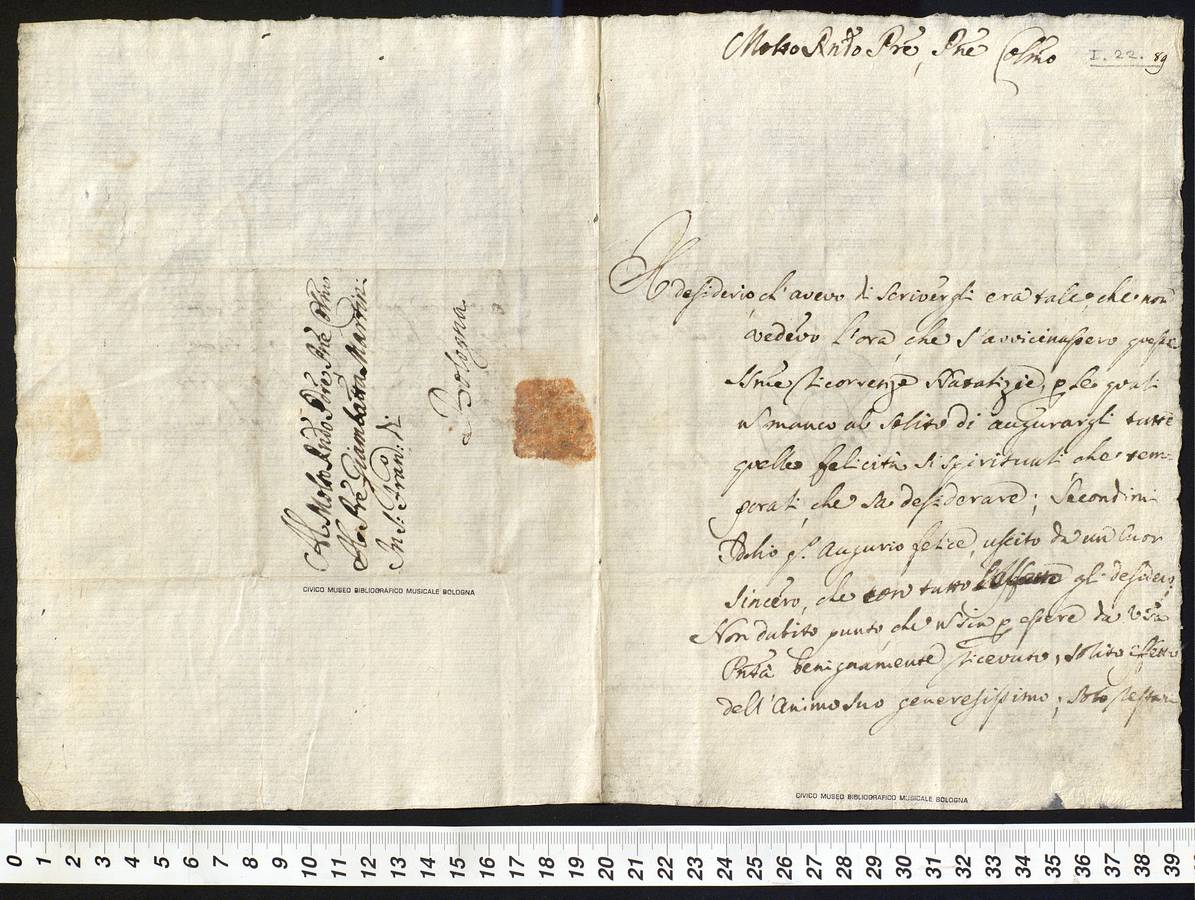 Al Molto Rndo Pre Pne Colmo
Il Pre Giambatta Martini
In S: Fran:
a Bologna
CIVICO MUSEO BIBLIOGRAFICO MUSICALE BOLOGNA
Molto Rndo Pre, Pne Colmo
I. 22. 89
Il desiderio ch'avevo di scrivergli era tale, che non
vedevo l'ora, che s'avvicinassero queste
SSme ricorrenze Natalizie, p le quali
n manco al solito di augurargli tutte
quelle felicità si spirituali, che tem=
porali, che sa desiderare;
Iddio qs. Augurio felice, uscito da un Cuor
sincero, che con tutto l'affetto gli desidero,
Non dubito punto, che n sia p essere da Vsa
Pntà benignamente ricevuto, solito effetto
dell'Animo suo generosissimo; solo restari
CIVICO MUSEO BIBLIOGRAFICO MUSICALE BOLOGNA
0 1 2 3 4 5 6 7 8 9 10 11 12 13 14 15 16 17 18 19 20 21 22 23 24 25 26 27 28 29 30 31 32 33 34 35 36 37 38 39